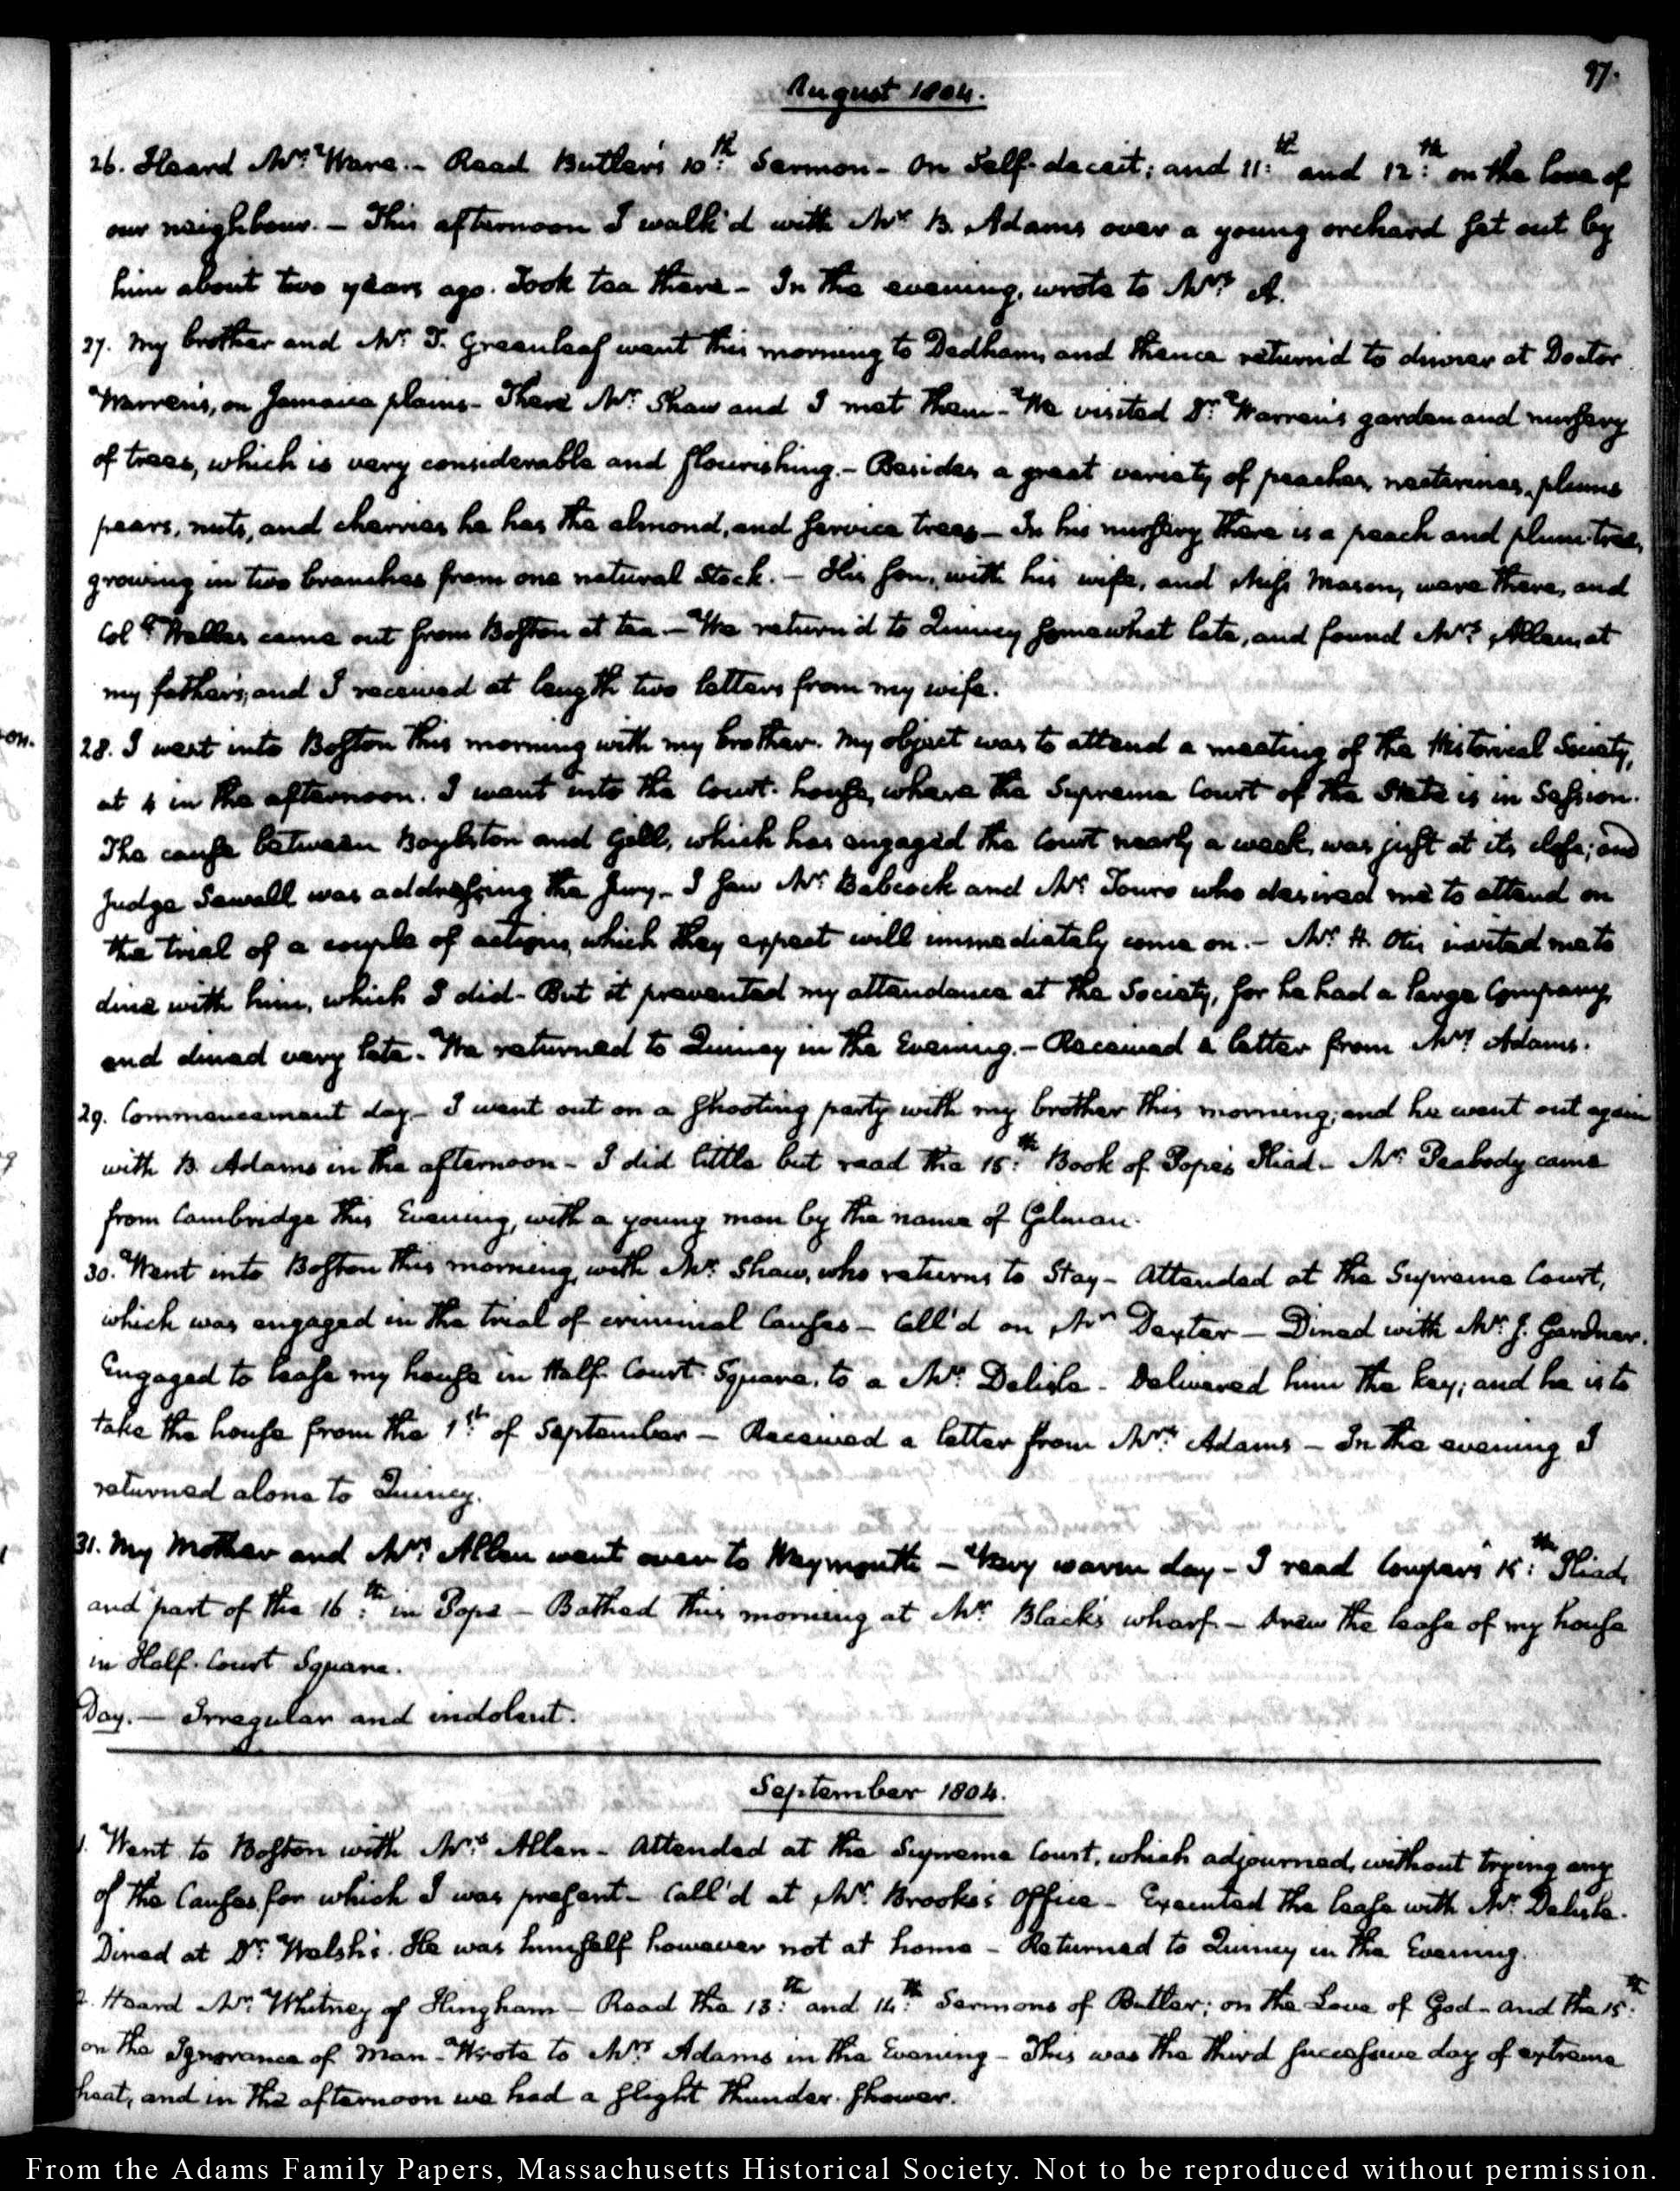 97.
August 1804.
26. Heard Mr. Ware.- Read Butler's 10th: Sermon- On Self-deceit; and 11:th and 12:th on the love of
our neighbour. - This afternoon I walk'd with Mr. B. Adams over a young orchard set out by
him about two years ago. Took tea there - In the evening, wrote to Mrs. A.
27. My brother and Mr. T. Greenleaf went this morning to Dedham, and thence return'd to dinner at Doctor
Warren's, on Jamaica plains- There Mr. Shaw and I met them- We visited Dr. Warren's garden and nursery
of trees, which is very considerable and flourishing.- Besides a great variety of peaches, nectarines, plums
pears, nuts, and cherries he has the almond, and service trees- In his nursery there is a peach and plum-tree,
growing in two branches from one natural stock. - His son, with his wife, and Miss Mason, were there, and
Coll. Welles came out from Boston at tea - We return'd to Quincy somewhat late, and found Mrs. Allen, at
my father's; and I received at length two letters from my wife.
28. I went into Boston this morning with my brother. My object was to attend a meeting of the Historical Society,
at 4 in the afternoon. I went into the Court-house, where the Supreme Court of the State is in Session.
The cause between Boylston and Gill, which has engaged the Court nearly a week, was just at its close; and
Judge Sewall was addressing the Jury- I saw Mr. Babcock and Mr. Touro who desired me to attend on
the trial of a couple of actions, which they expect will immediately come on.- Mr. H. Otis invited me to
dine with him, which I did- But it prevented my attendance at the Society, for he had a large Company,
and dined very late. We returned to Quincy in the Evening.- Received a letter from Mrs. Adams.
29. Commencement day- I went out on a shooting party with my brother this morning; and he went out again
with B. Adams in the afternoon- I did little but read the 15:th Book of Pope's Iliad- Mr. Peabody came
from Cambridge this Evening, with a young man by the name of Gilman.
30. Went into Boston this morning, with Mr. Shaw, who returns to Stay- Attended at the Supreme Court,
which was engaged in the trial of criminal Causes- Call'd on Mr. Dexter- Dined with Mr. J. Gardner.
Engaged to lease my house in Half-Court-Square, to a Mr. Delisle- Delivered him the key; and he is to
take the house from the 1st: of September- Received a letter from Mrs. Adams- In the evening I
returned alone to Quincy.
31. My Mother and Mrs. Allen went over to Weymouth - Very warm day- I read Cowper's 15:th Iliad,
and part of the 16:th in Pope- Bathed this morning at Mr. Black's wharf- Drew the lease of my house
in Half-Court Square.
Day.- Irregular and indolent.
September 1804.
1. Went to Boston with Mrs. Allen- Attended at the Supreme Court, which adjourned, without trying any
of the Causes for which I was present- Call'd at Mr. Brooks's Office- Executed the lease with Mr. Delisle.
Dined at Dr. Welsh's. He was himself however not at home- Returned to Quincy in the Evening.
2. Heard Mr. Whitney of Hingham- Read the 13:th and 14:th Sermons of Butler; on the Love of God- and the 15:th
on the Ignorance of Man- Wrote to Mrs. Adams in the Evening- This was the third successive day of extreme
heat, and in the afternoon we had a slight thunder-shower.
From the Adams Family Papers, Massachusetts Historical Society. Not to be reproduced without permission.